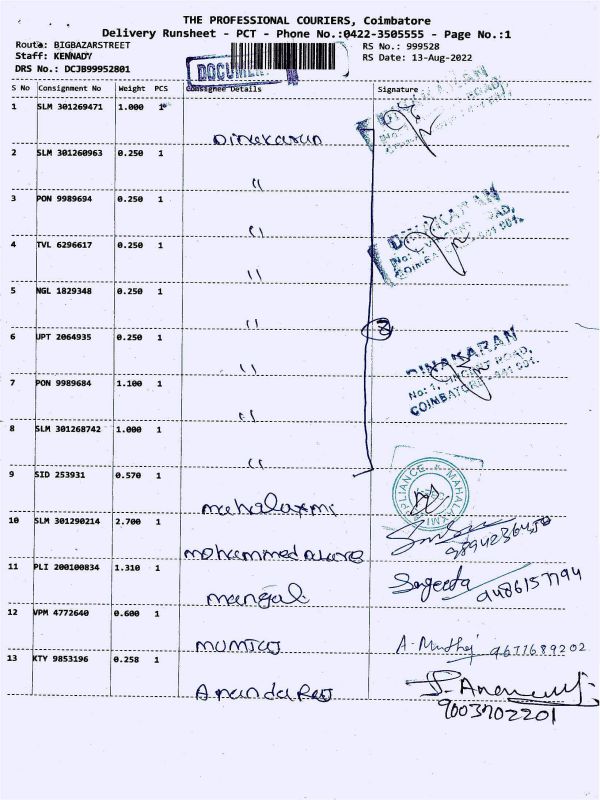 THE PROFESSIONAL COURIERS, Coimbatore
Delivery Runsheet - PCT - Phone No.:0422-3505555 - Page No.:1
Route: BIGBAZARSTREET
RS No.: 999528
Staff: KENNADY
RS Date: 13-Aug-2022
DRS No.: DCJB99952801
DOCUMENT
S No Consignment No Weight PCS Consignee Details Signature
1 SLM 301269471 1.000 1 Dinakaran
2 SLM 301260963 0.250 1 "
3 PON 9989694 0.250 1 "
4 TVL 6296617 0.250 1 "
5 NGL 1829348 0.250 1 "
6 UPT 2064935 0.250 1 "
7 PON 9989684 1.100 1 "
8 SLM 301268742 1.000 1 "
DINAKARAN
DINAKARAN
DINAKARAN
No: 1, ROAD,
COIMBATORE
9 SID 253931 0.570 1 mahalaxmi
APPLIANCE MAHALAXMI
10 SLM 301290214 2.700 1 mohammed
11 PLI 200100834 1.310 1 mangal Sangeeta 9486157794
12 VPM 4772640 0.600 1 mumtaj A-Mumthaj 9677689202
13 KTY 9853196 0.258 1 Ananda Raj
9003702201